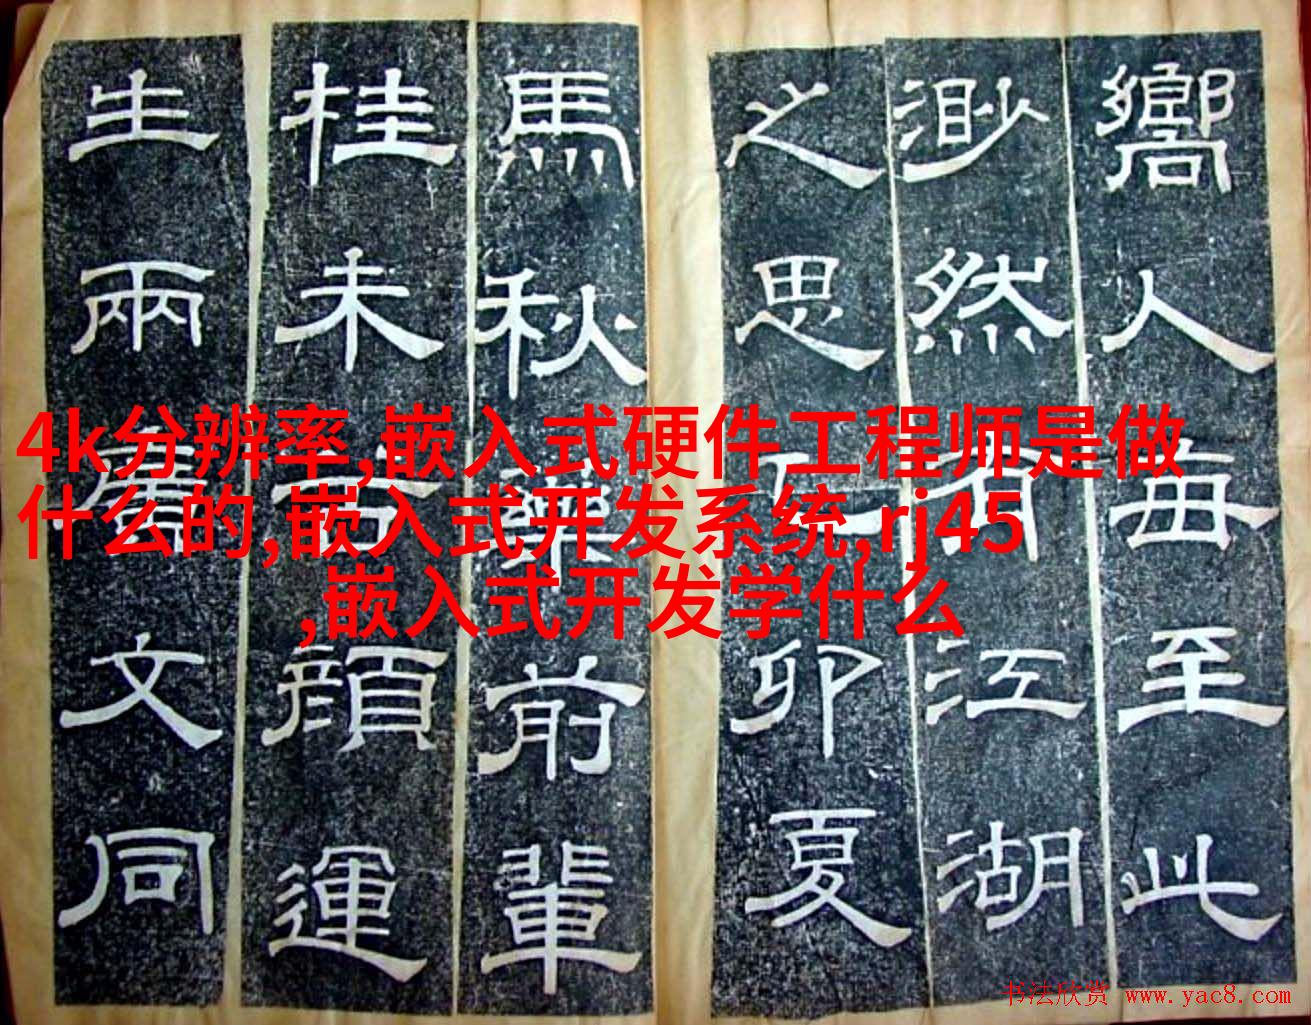 嚮人每至此
渺然有江湖
之思乙卯夏
馬秋藥前輩
桂未谷顏運
生兩廣文同
4k分辨率,嵌入式硬件工程师是做
什么的,嵌入式开发系统,rj45
,嵌入式开发学什么
书法欣赏 www.yac8.com